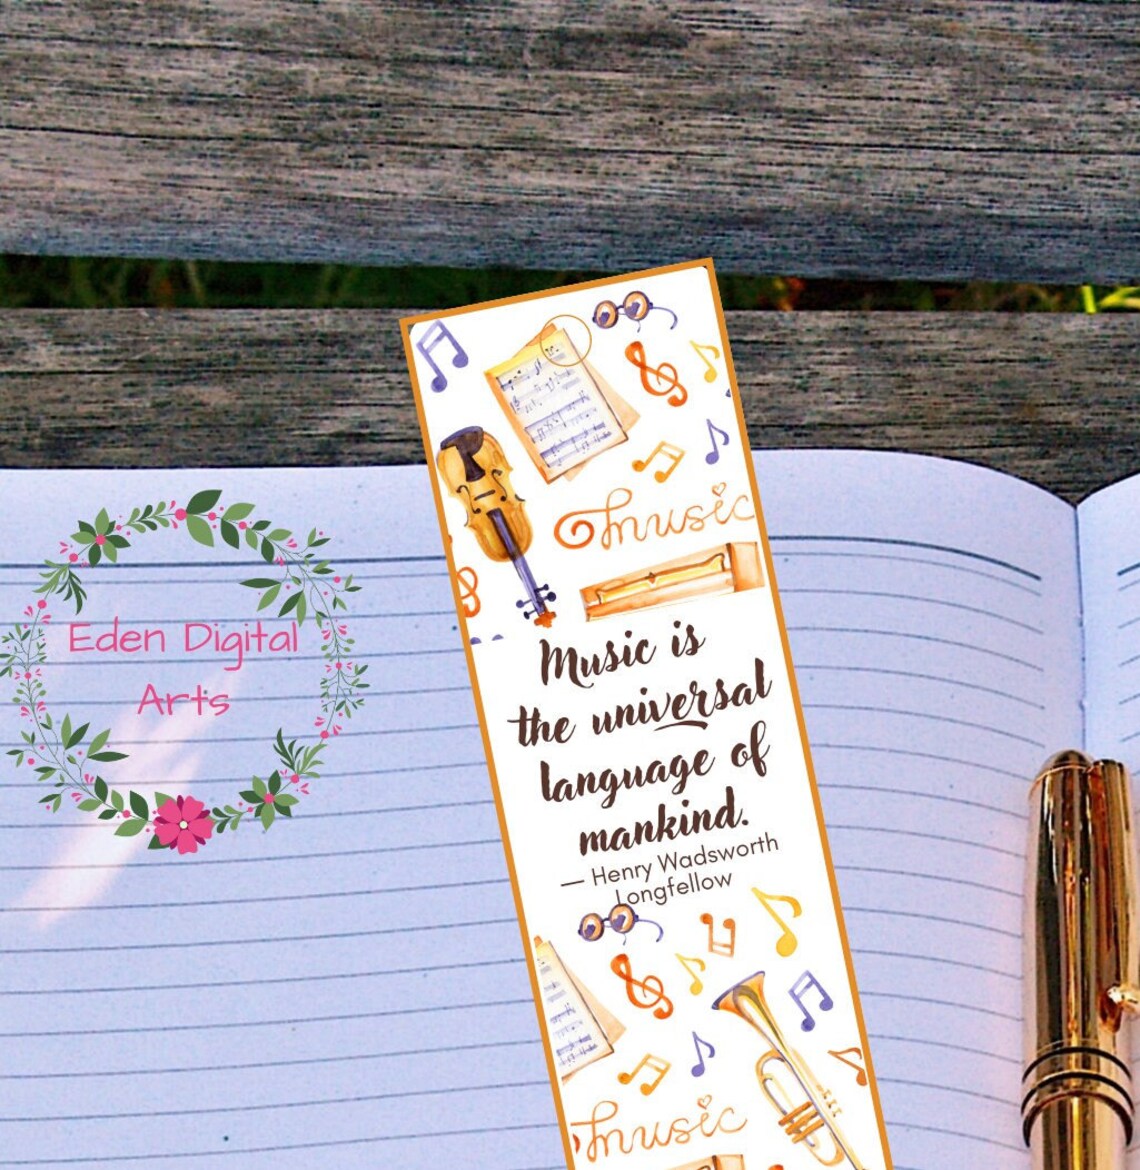 Eden Digital
Arts
music
Music is
the universal
language of
mankind.
— Henry Wadsworth
Longfellow
music